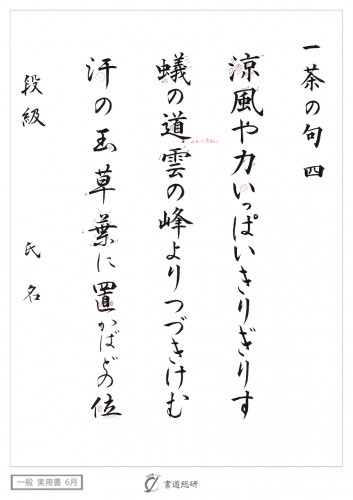 一茶の句 四
涼風や力いっぱいきりぎりす
蟻の道雲の峰よりつづきけむ
汗の玉草葉に置かばどの位
段級 氏名
一般 実用書 6月
書道総研